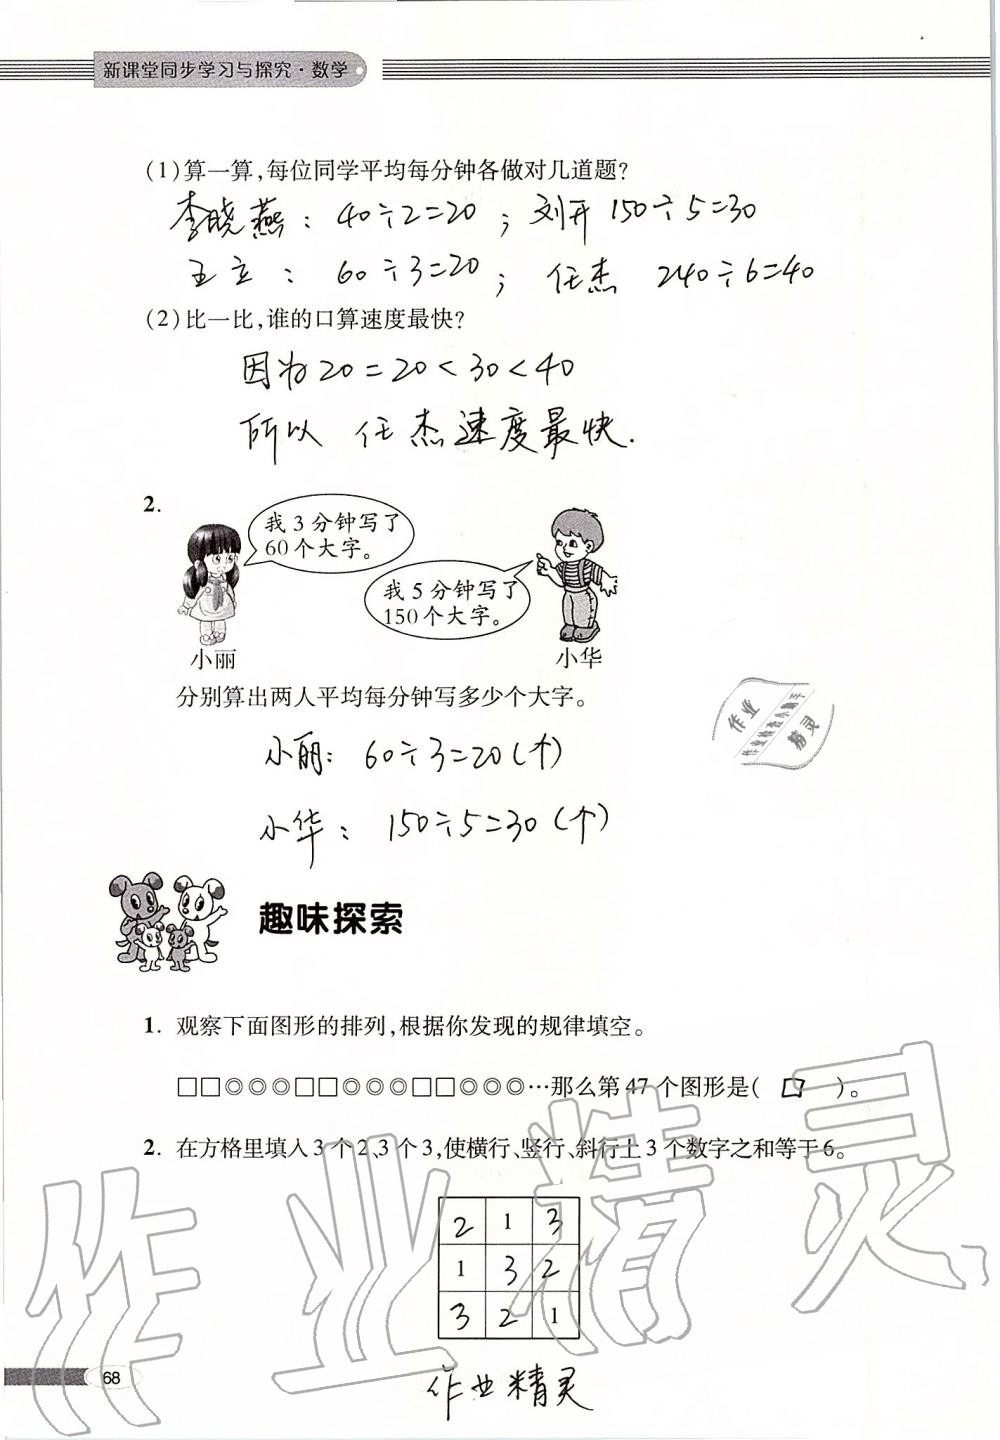 新课堂同步学习与探究·数学
(1)算一算,每位同学平均每分钟各做对几道题?
李晓燕：40÷2=20；刘开 150÷5=30
王立：60÷3=20；任杰 240÷6=40
(2)比一比,谁的口算速度最快?
因为20=20<30<40
所以 任杰速度最快.
2.
我3分钟写了
60个大字。
我5分钟写了
150个大字。
小丽
小华
分别算出两人平均每分钟写多少个大字。
作业
作业检查小助手
精灵
小丽：60÷3=20(个)
小华：150÷5=30(个)
趣味探索
1. 观察下面图形的排列,根据你发现的规律填空。
□□◎◎◎□□◎◎◎□□◎◎◎…那么第47个图形是( □ )。
2. 在方格里填入3个2、3个3,使横行、竖行、斜行上3个数字之和等于6。
2 1 3
1 3 2
3 2 1
作业精灵
68
作业精灵